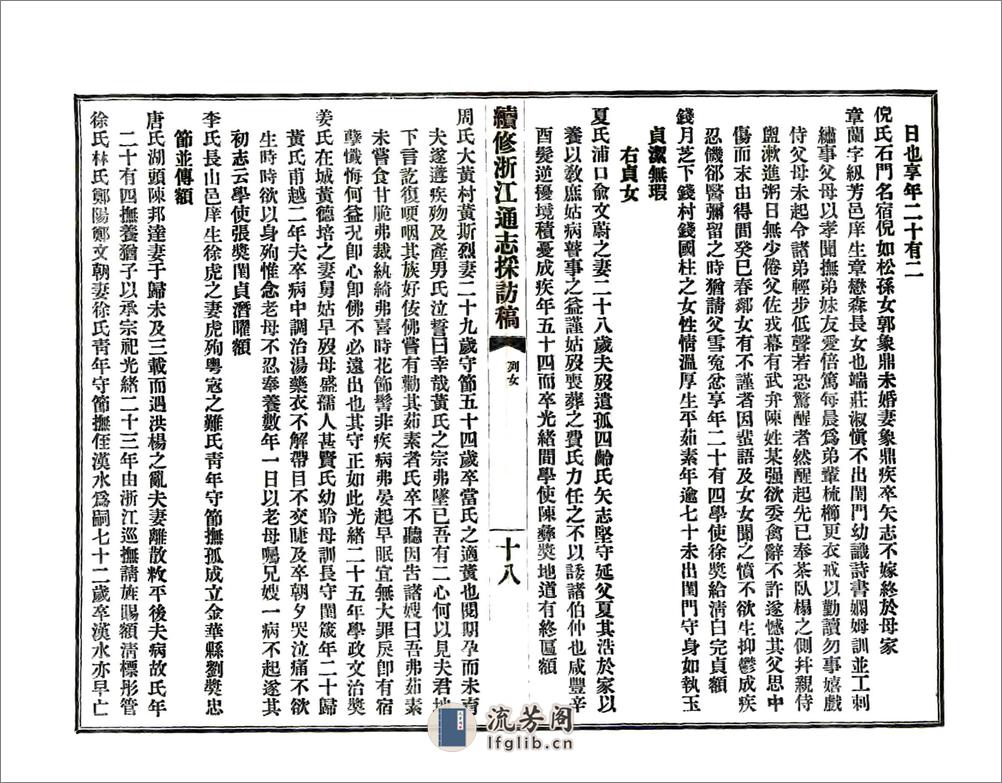 日也享年二十有二
倪氏石門名宿倪如松孫女郭象鼎未婚妻象鼎疾卒矢志不嫁終於母家
章蘭字級芳邑庠生章懋森長女也端莊淑愼不出閨門幼讖詩書嫻姆訓並工刺
繡事父母以孝聞撫弟妹友愛倍篤每晨爲弟輩梳櫛更衣戒以勤讀勿事嬉戲
侍父母未起令諸弟輕步低聲若恐驚醒者然醒起先已奉茶臥榻之側幷親侍
盥漱進粥日無少倦父佐戎幕有武弁陳姓某强欲委禽辭不許遂憾其父思中
傷而末由得間癸巳春鄰女有不謹者因蜚語及女女聞之憤不欲生抑鬱成疾
忍饑郤醫彌留之時猶請父雪寃忿享年二十有四學使徐奬給清白完貞額
錢月芝下錢村錢國柱之女性情溫厚生平茹素年逾七十未出閨門守身如執玉
貞潔無瑕
右貞女
夏氏浦口俞文蔚之妻二十八歲夫歿遺孤四齡氏矢志堅守延父夏其浩於家以
養以敎庶姑病瞽事之益謹姑歿喪葬之費氏力任之不以諉諸伯仲也咸豐辛
酉髮逆擾境積憂成疾年五十四而卒光緒間學使陳彝奬地道有終區額
續修浙江通志採訪稿
列女
十八
周氏大黃村黃斯烈妻二十九歲守節五十四歲卒當氏之適黃也閱期孕而未育
夫遂遘疾殁及產男氏泣誓曰幸哉黃氏之宗弗墜已吾有二心何以見夫君地
下言訖復哽咽其族好佞佛嘗有勸其茹素者氏卒不聽因告諸嫂曰吾弗茹素
未嘗食甘脆弗裁紈綺弗喜時花飾髻非疾病弗晏起早眠宜無大罪戾卽有宿
孽懺悔何益况卽心卽佛不必遠出也其守正如此光緒二十五年學政文治奬
姜氏在城黃德培之妻舅姑早歿母盛孺人甚賢氏幼聆母訓長守閨箴年二十歸
黃氏甫越二年夫卒病中調治湯藥衣不解帶目不交睫及卒朝夕哭泣痛不欲
生時時欲以身殉惟念老母不忍奉養數年一日以老母囑兄嫂一病不起遂其
初志云學使張奬閨貞潛曜額
李氏長山邑庠生徐虎之妻虎殉粤寇之難氏靑年守節撫孤成立金華縣劉奬忠
節並傳額
唐氏湖頭陳邦達妻于歸未及三載而遇洪楊之亂夫妻離散敉平後夫病故氏年
二十有四撫養猶子以承宗祀光緒二十三年由浙江巡撫請旌賜額清標彤管
徐氏林氏鄭陽鄭文朝妻徐氏靑年守節撫侄漢水爲嗣七十二歲卒漢水亦早亡
流芳阁
lfglib.cn